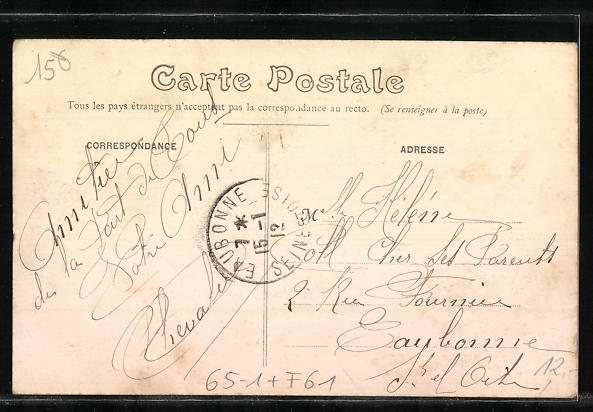 150
Carte Postale
Tous les pays étrangers n'acceptent pas la correspondance au recto. (Se renseigner à la poste)
CORRESPONDANCE
ADRESSE
Amitiés
de la part de
Votre Amie
Chevalier
EAUBONNE
7 *
15-1
12
SEINE-ET-OISE
M
Hélène
Cher Ses Parents
2 Rue Fournier
Eaubonne
S. et Oise
12,-
65-1+F61